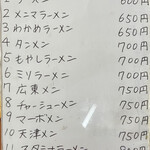 600円
2 メンマラーメン 650円
3 わかめラーメン 650円
4 タンメン 700円
5 もやしラーメン 700円
6 ミソラーメン 700円
7 広東メン 750円
8 チャーシューメン 750円
9 マーボメン 750円
10 天津メン 750円
11 スタミナラーメン